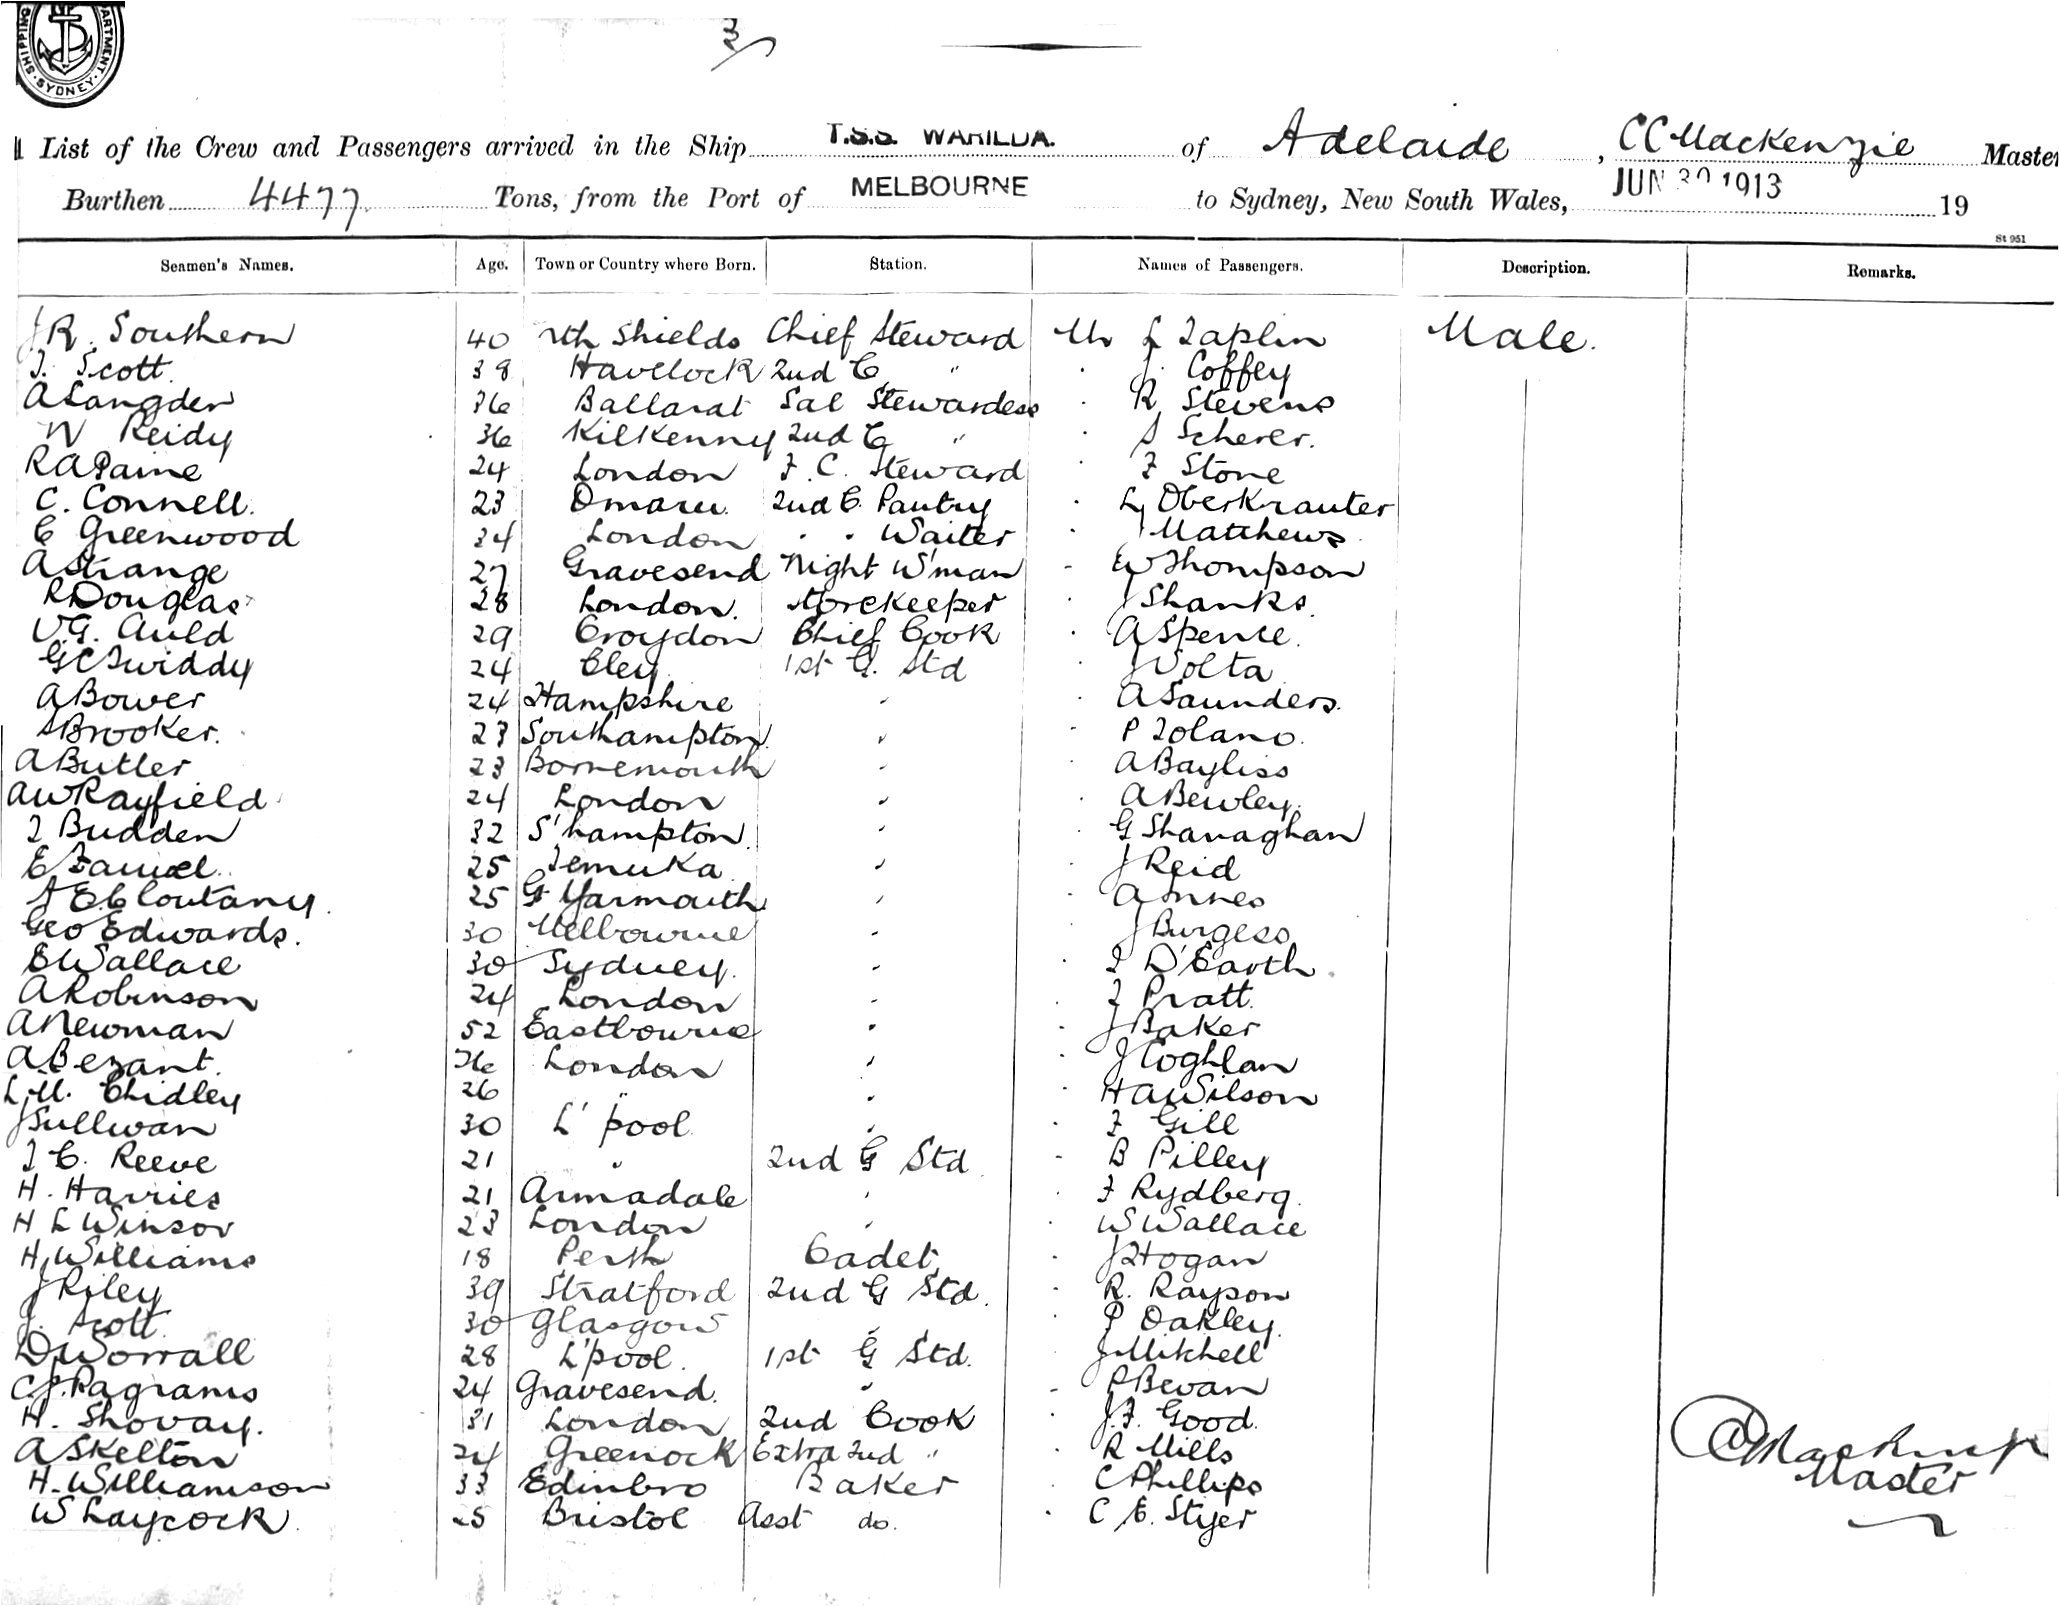 SHIPPING DEPARTMENT SYDNEY
3
List of the Crew and Passengers arrived in the Ship T.S.S. WARILDA. of Adelaide, CC Mackenzie Master
Burthen 4477 Tons, from the Port of MELBOURNE to Sydney, New South Wales, JUN 30 1913 19
St 951
Seamen's Names. Age. Town or Country where Born. Station. Names of Passengers. Description. Remarks.
J R. Southern 40 Nth Shields Chief Steward Mr L Taplin Male.
T. Scott. 38 Havelock 2nd C " · J. Coffey
A Langden 36 Ballarat Sal Stewardess · R Stevens
N Reidy 36 Kilkenny 2nd C " · S Scherer.
R A Paine 24 London F. C. Steward · F Stone
C. Connell. 23 Omaru. 2nd C. Pantry · L Oberkrauter
C Greenwood 34 London · · Waiter · J Matthews
A Strange 27 Gravesend Night W'man - E W Thompson
R Douglas 28 London. Storekeeper · J Shanks.
V G. Auld 29 Croydon Chief Cook · A Spence.
G C Twiddy 24 Cley 1st G. Std · J Volta
A Bower 24 Hampshire " · A Saunders.
S Brooker. 23 Southampton " · P Tolano.
A Butler 23 Bornemouth " · A Bayliss
A W Rayfield 24 London " · A Bewley.
T Budden 32 S'hampton " · G Shanaghan
E 25 Temuka " · J Reid
25 Gt Yarmouth " · A Innes
Geo Edwards. 30 Melbourne " · J Burgess
E Wallace 30 Sydney. " · T D'Earth.
A Robinson 24 London " · F Pratt.
A Newman 52 Eastbourne " · J Baker
A Bezant. 36 London " · J Coghlan
L. M. Chidley 26 " " · H A Wilson
J Sullivan 30 L'pool " · F Gill
T C. Reeve 21 " 2nd G Std · B Pilley
H. Harries 21 Armadale " · F Rydberg.
H L Winsor 23 London " · W Wallace
H. Williams 18 Perth Cadet · J Hogan
J Riley 39 Stratford 2nd G Std. · R. Rayson
J. Scott. 30 Glasgow " · P Oakley.
D. Worrall 28 L'pool. 1st G Std. · J Mitchell
C. J. Pagrams 24 Gravesend. " · P Bevan
H. Shovay. 31 London 2nd Cook · J. F. Good.
A Skelton 24 Greenock Extra 2nd " · R Mills
H. Williamson 33 Edinbro Baker · C Phillips
W Laycock 25 Bristol Asst do. · C E. Styer
CC Mackenzie
Master